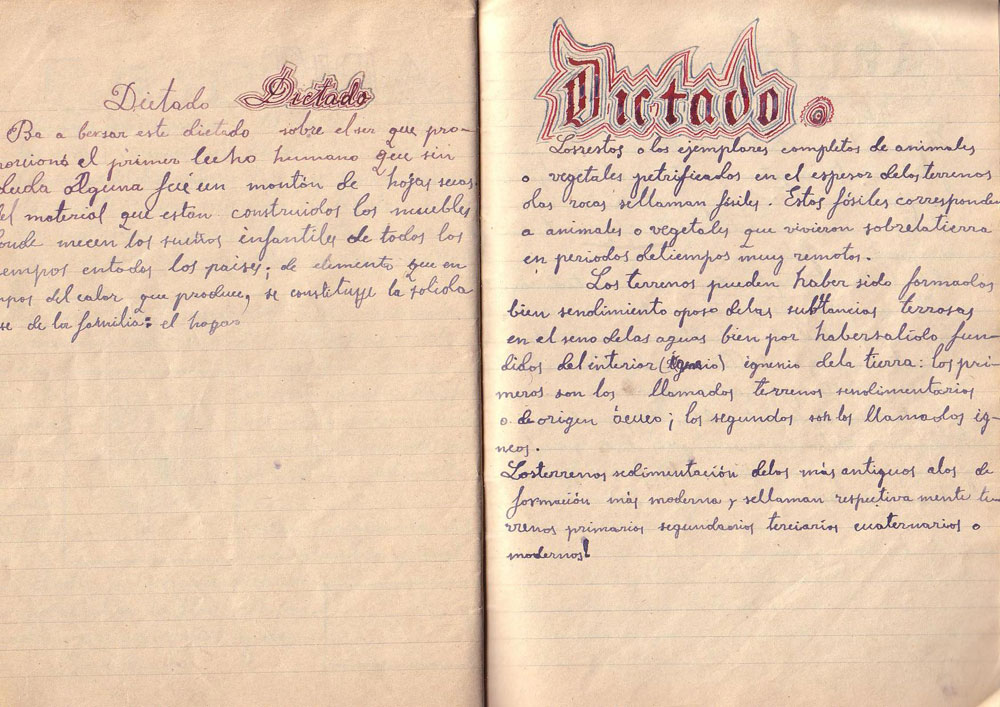 Dictado Dictado
Ba a bersar este dictado sobre el ser que pro-
porcionó el primer lecho humano que sin
duda alguna fué un montón de hojas secas.
del material que están construidos los muebles
donde mecen los sueños infantiles de todos los
tiempos entodos los paises; de elemento que en
del calor que produce, se constituyye la solida
se de la familia: el hogar
Dictado.
Losrestos o los ejemplares completos de animales
o vegetales petrificados en el espesor delosterrenos
olas rocas sellaman fósiles. Estos fósiles corresponden
a animales o vegetales que vivieron sobrelatierra
en periodos detiempos muy remotos.
Los terrenos pueden haber sido formados
bien sendimiento oposo delas substancias terrosas
en el seno delas aguas bien por habersalido fun-
didos delinterior (igneio) ignenio dela tierra: los pri-
meros son los llamados terrenos sendimentarios
o de origen ácueo; los segundos son los llamados íg-
neos.
Losterrenos sedimentación delos más antiguos alos de
formación más moderna y sellaman respectiva mente te-
rrenos primarios segundarios terciarios cuaternarios o
modernos!